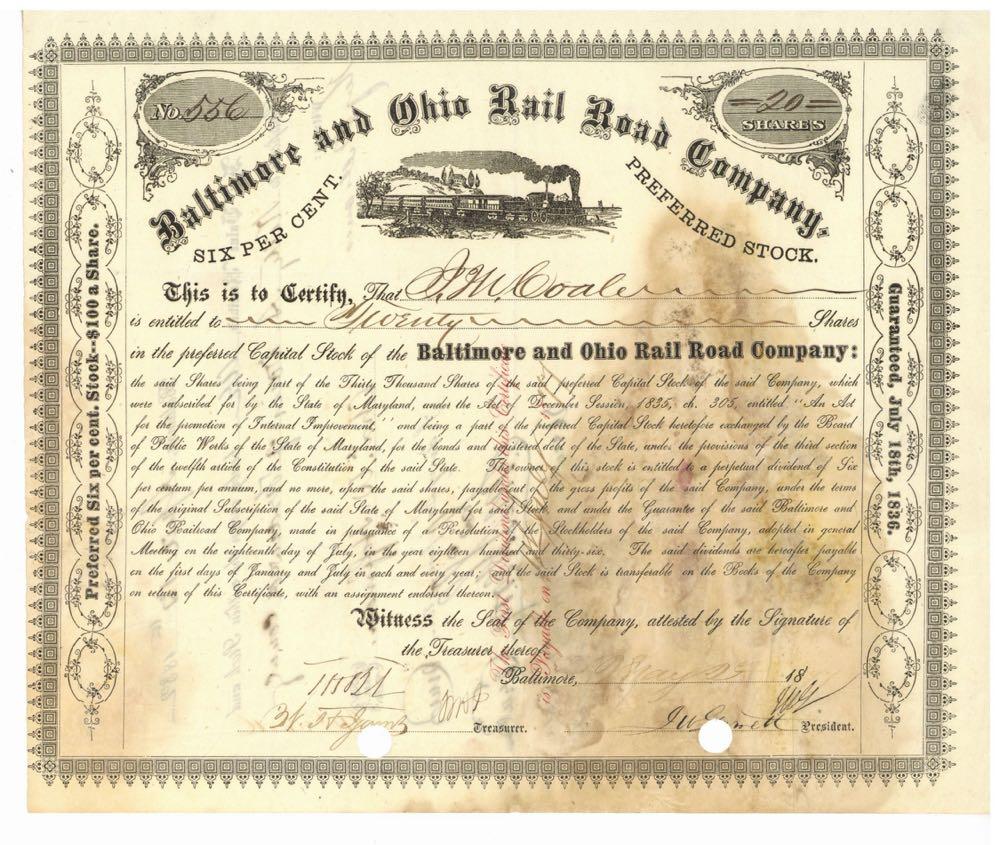 No. 556
=20=
SHARES
Baltimore and Ohio Rail Road Company.
SIX PER CENT.
PREFERRED STOCK.
This is to Certify, That J. W. Coale
is entitled to Twenty Shares
in the preferred Capital Stock of the Baltimore and Ohio Rail Road Company:
the said Shares being part of the Thirty Thousand Shares of the said preferred Capital Stock of the said Company, which
were subscribed for by the State of Maryland, under the Act of December Session, 1835, ch. 305, entitled "An Act
for the promotion of Internal Improvement," and being a part of the preferred Capital Stock heretofore exchanged by the Board
of Public Works of the State of Maryland, for the bonds and registered debt of the State, under the provisions of the third section
of the twelfth article of the Constitution of the said State. The owner of this stock is entitled to a perpetual dividend of Six
per centum per annum, and no more, upon the said shares, payable out of the gross profits of the said Company, under the terms
of the original Subscription of the said State of Maryland for said Stock and under the Guarantee of the said Baltimore and
Ohio Railroad Company, made in pursuance of a Resolution of the Stockholders of the said Company, adopted in general
Meeting on the eighteenth day of July, in the year eighteen hundred and thirty-six. The said dividends are hereafter payable
on the first days of January and July in each and every year; and the said Stock is transferable on the Books of the Company
on return of this Certificate, with an assignment endorsed thereon.
Witness the Seal of the Company, attested by the Signature of
the Treasurer thereof.
Baltimore, 18
Treasurer.
President.
Preferred Six per cent. Stock--$100 a Share.
Guaranteed, July 18th, 1836.